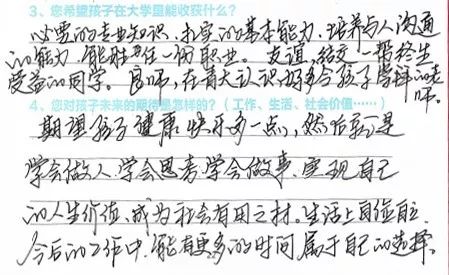 3、您希望孩子在大学里能收获什么？
必要的专业知识，扎实的基本能力，培养与人沟通
的能力，能胜任一個职业。友谊，结交一帮终生
受益的同学。良师，在青大认识好多令孩子学拜的老
师。
4、您对孩子未来的期待是怎样的？（工作、生活、社会价值……）
期望孩子健康快乐多一点，然后就是
学会做人.学会思考.学会做事.实现自己
的人生价值、成为社会有用之材。生活上自信自立.
今后的工作中.能有更多的时间属于自己的选择。